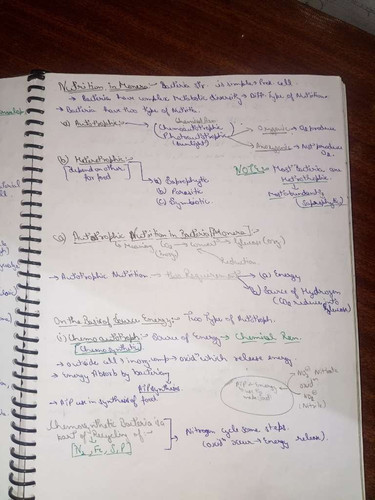 Nutrition in Monera :- Bacteria str. is simple
→ Bacteria have complex Metabolic diversity → Diff Type of Nutrition.
→ Bacteria have two Type of Nutritn.
a) Autotrophic
Chemoautotrophic
Photoautotrophic
(Sunlight)
Oxygenic → O2 produce
Anoxygenic → Not produce O2.
(b) Heterotrophic :-
depend on other for food
(a) Saprophytic
(b) Parasitic
(c) Symbiotic
NOTE:- Most Bacteria are
Heterotrophic
most abundantly
(Saprophytic)
(a) Autotrophic Nutrition in Bacteria [Monera] :-
Meaning CO2 → convert → Glucose (org)
Reduction
→ Autotrophic Nutrition → two Requirement
(a) Energy
(b) Source of Hydrogen
(CO2 reduce into Glucose)
On the Basis of Source Energy :- Two Type of Autotroph.
(i) Chemoautotroph :- Source of Energy → Chemical Rxn.
(Chemosynthetic)
→ outside cell → inorg comp → oxidn which release energy
→ Energy Absorb by bacteria
ATP synthesis
→ ATP use in synthesis of food
Chemosynthetic Bacteria is
part of Recycling of -
[N2, Fe, S, P]
→ Nitrogen cycle some steps.
(oxidn occur → Energy release).